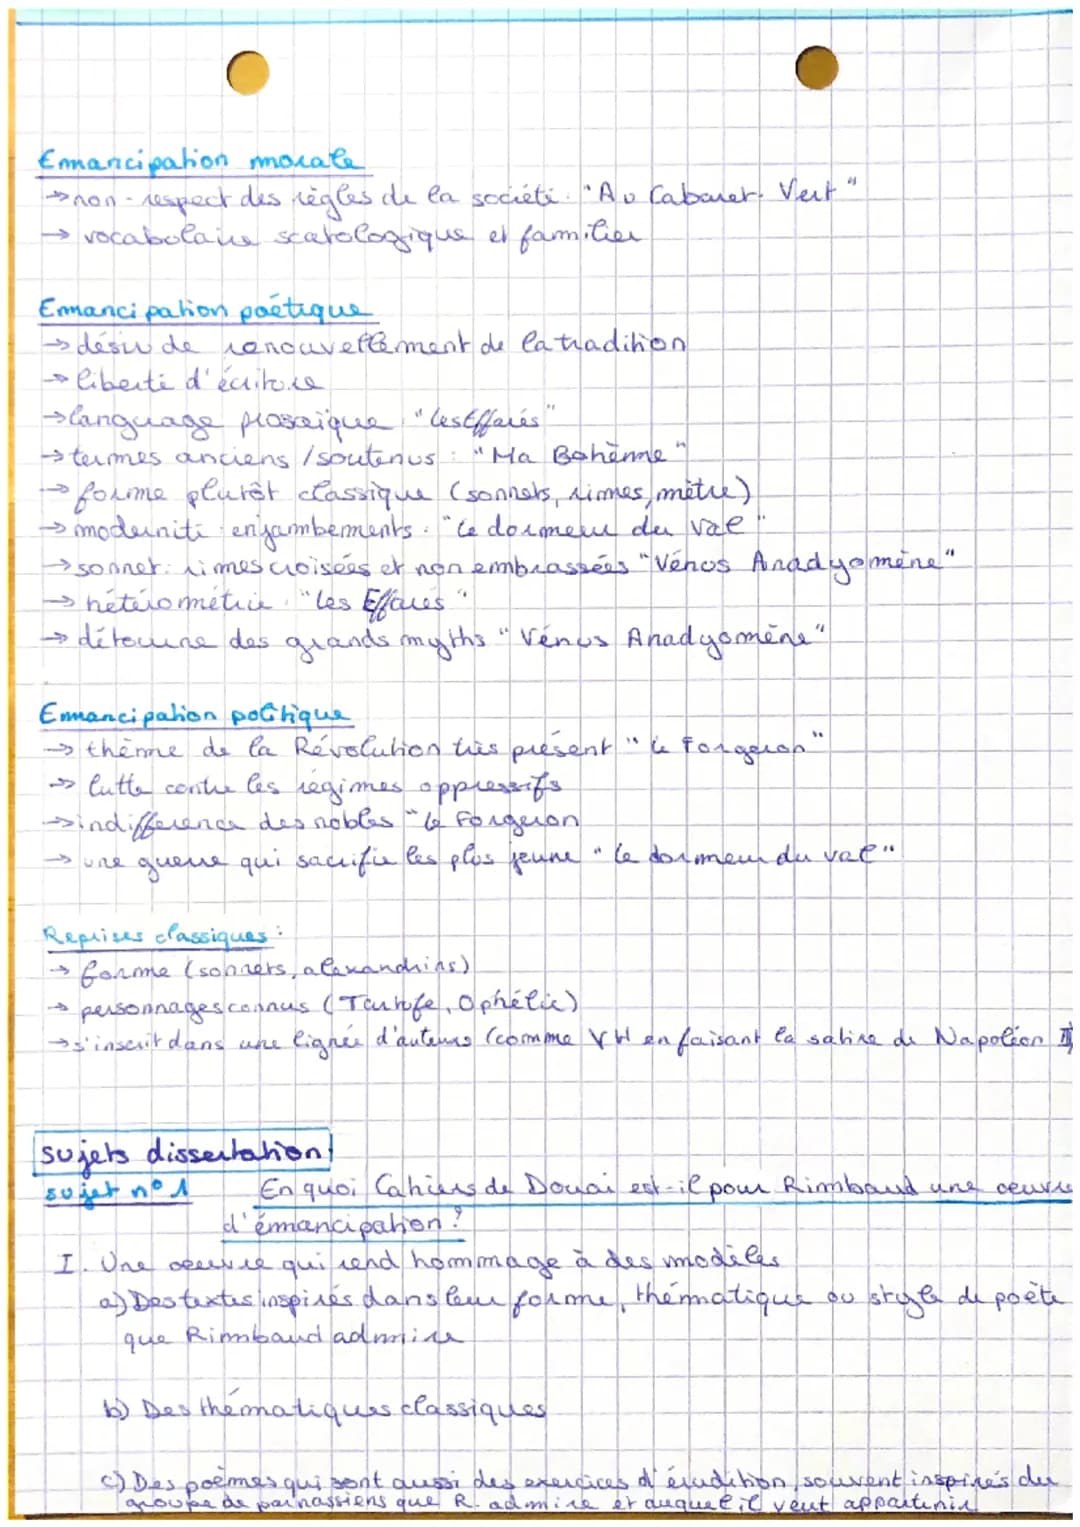 Emancipation morale
→ non-respect des règles de la société : "Au Cabaret-Vert"
→ vocabulaire scatologique et familier
Emancipation poétique
→ désir de renouvellement de la tradition
→ liberté d'écriture
→ language prosaïque : "les Effarés"
→ termes anciens / soutenus : "Ma Bohème"
→ forme plutôt classique (sonnets, rimes, mètre)
→ modernité : enjambements : "Le dormeur du val"
→ sonnet : rimes croisées et non embrassées "Vénus Anadyomène"
→ hétérométrie : "Les Effarés"
→ détourne des grands myths "Vénus Anadyomène"
Emancipation politique
→ thème de la Révolution très présent "Le Forgeron"
→ lutte contre les régimes oppressifs
→ indifférence des nobles "Le Forgeron
→ une guerre qui sacrifie les plus jeune "Le dormeur du val"
Reprises classiques :
→ forme (sonnets, alexandrins)
→ personnages connus (Tartufe, Ophélie)
→ s'inscrit dans une lignée d'auteurs (comme VH en faisant la satire de Napoléon III
sujets dissertation
sujet n°1 En quoi Cahiers de Douai est-il pour Rimbaud une oeuvre
d'émancipation ?
I. Une oeuvre qui rend hommage à des modèles
a) Des textes inspirés dans leur forme, thématique ou style de poète
que Rimbaud admire
b) Des thématiques classiques
c) Des poèmes qui sont aussi des exercices d'érudition, souvent inspirés du
groupe de parnassiens que R. admire et auquel il veut appartenir